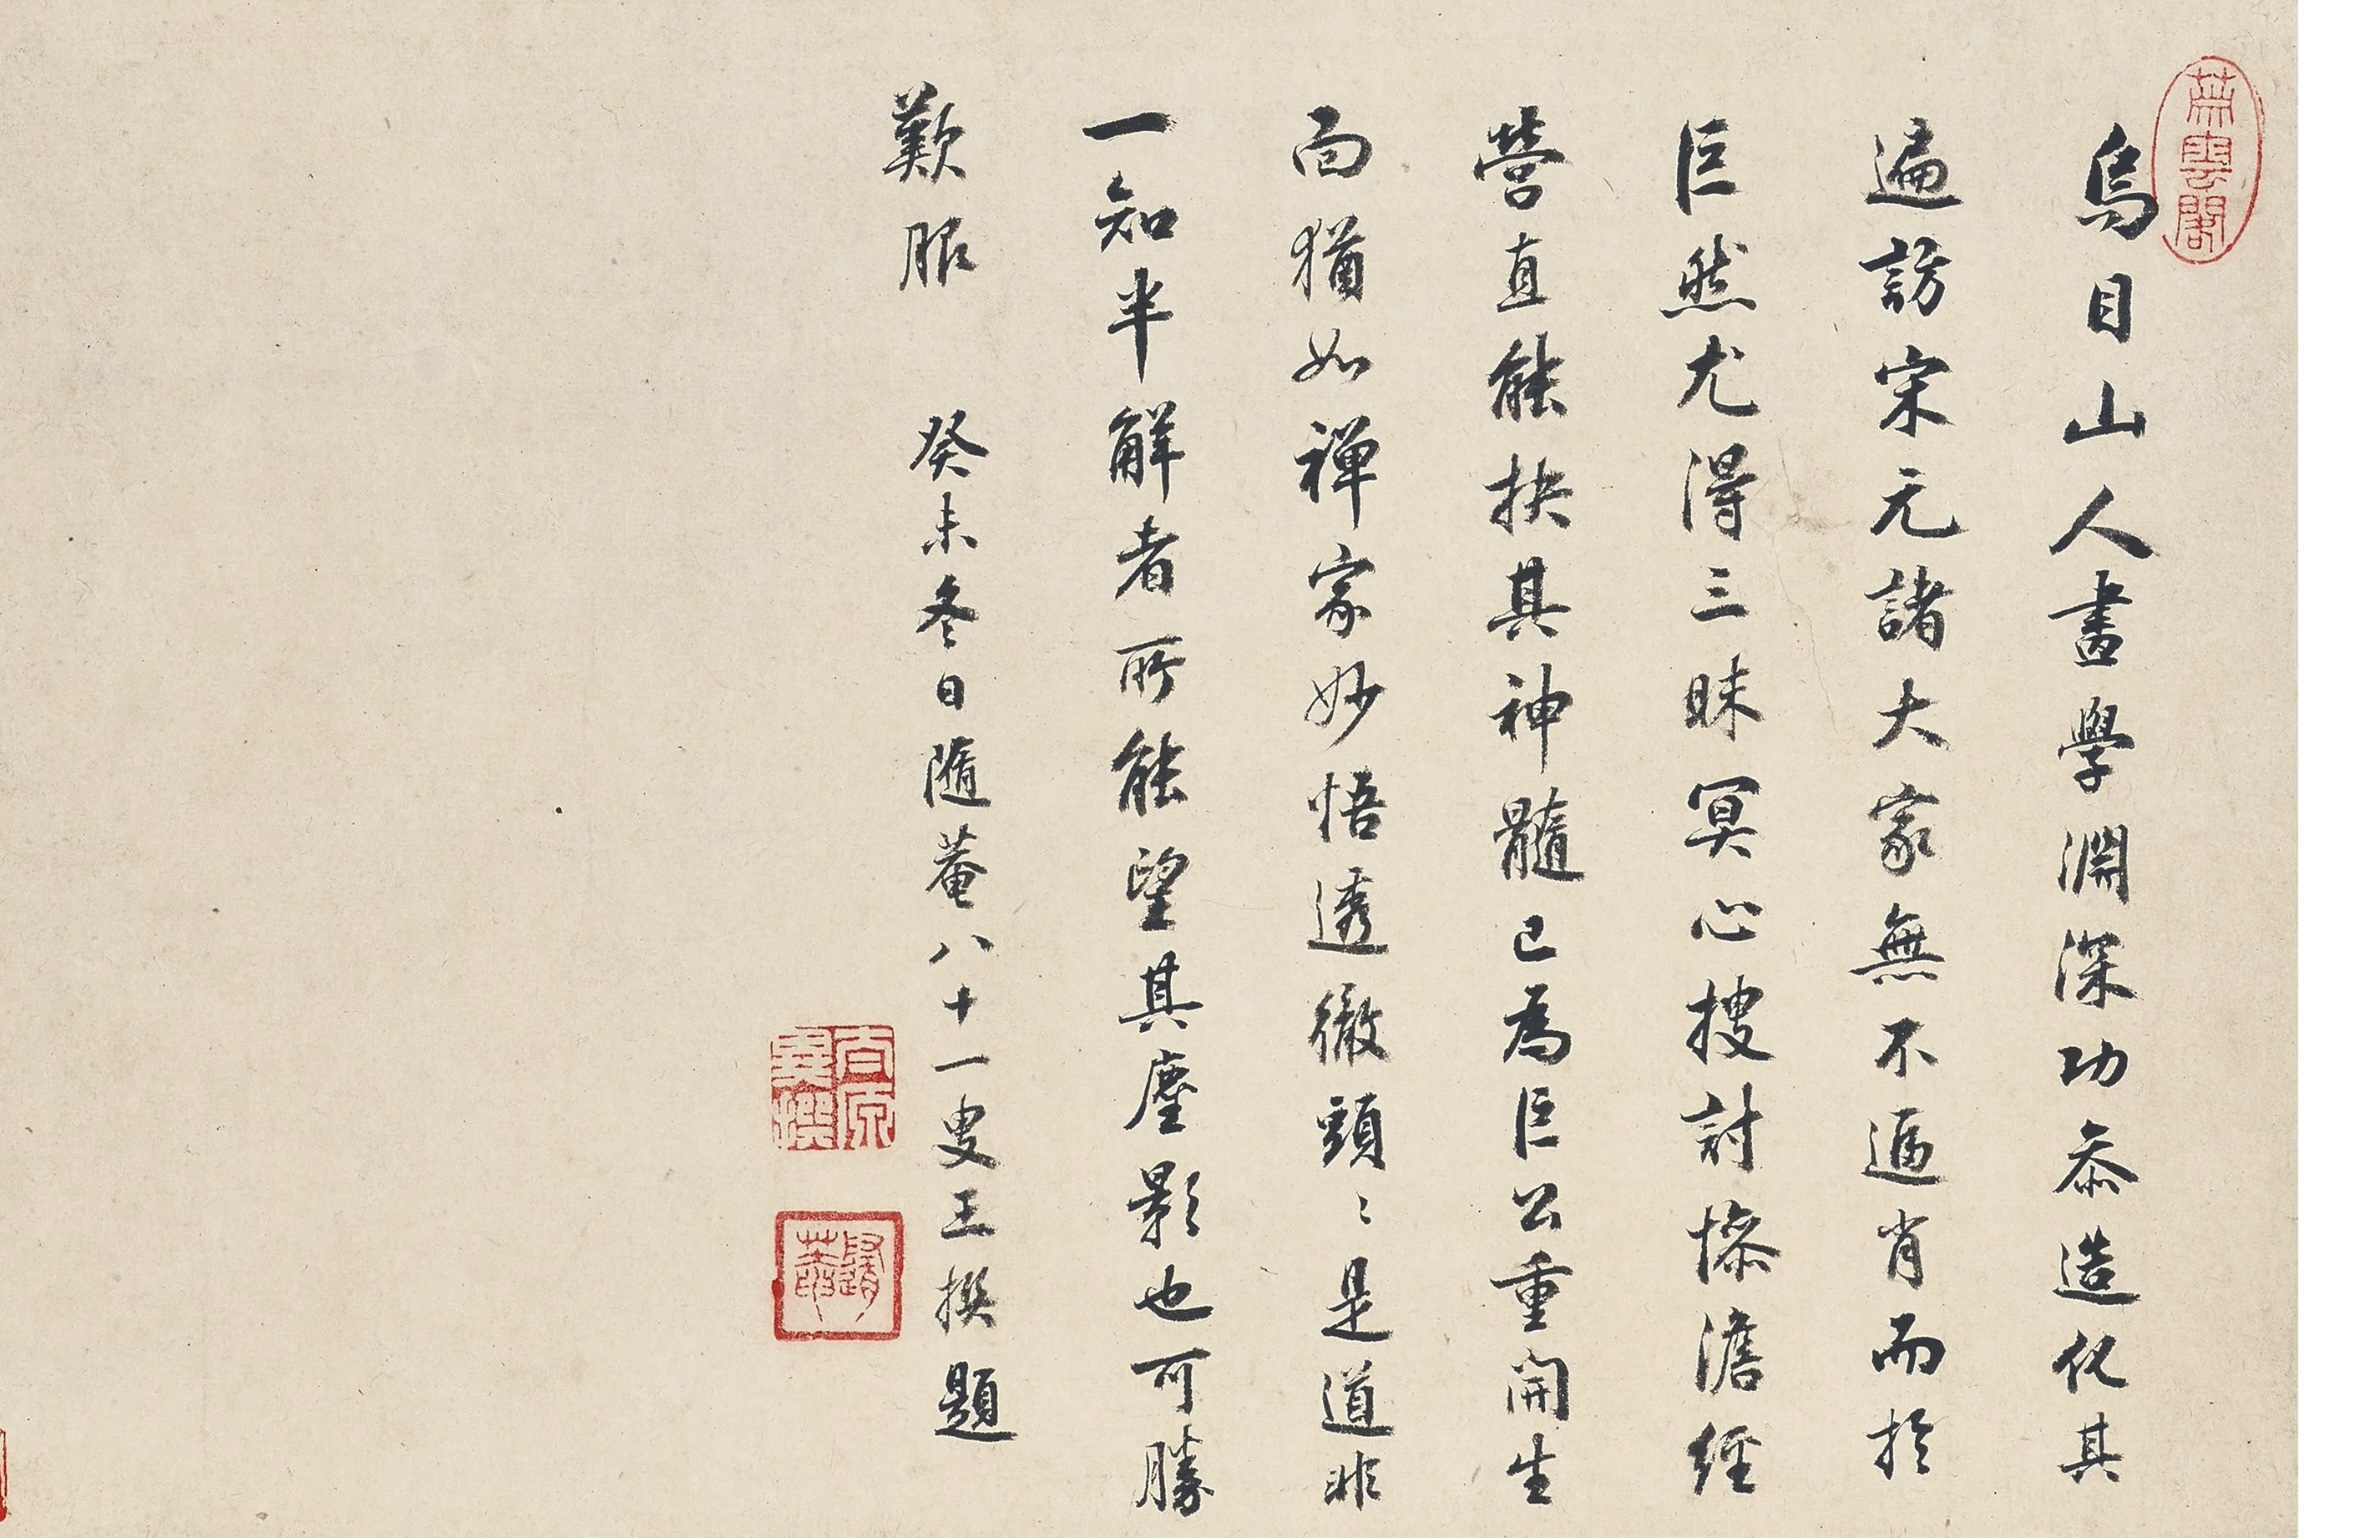 蕪雲閣
烏目山人畫學淵深功叅造化其
遍訪宋元諸大家無不逼肖而於
巨然尤得三昧冥心搜討慘澹經
營直能抉其神髓已為巨公重開生
面猶如禪家妙悟透徹頭〻是道非
一知半解者所能望其塵影也可勝
歎服
癸未冬日隨菴八十一叟王撰題